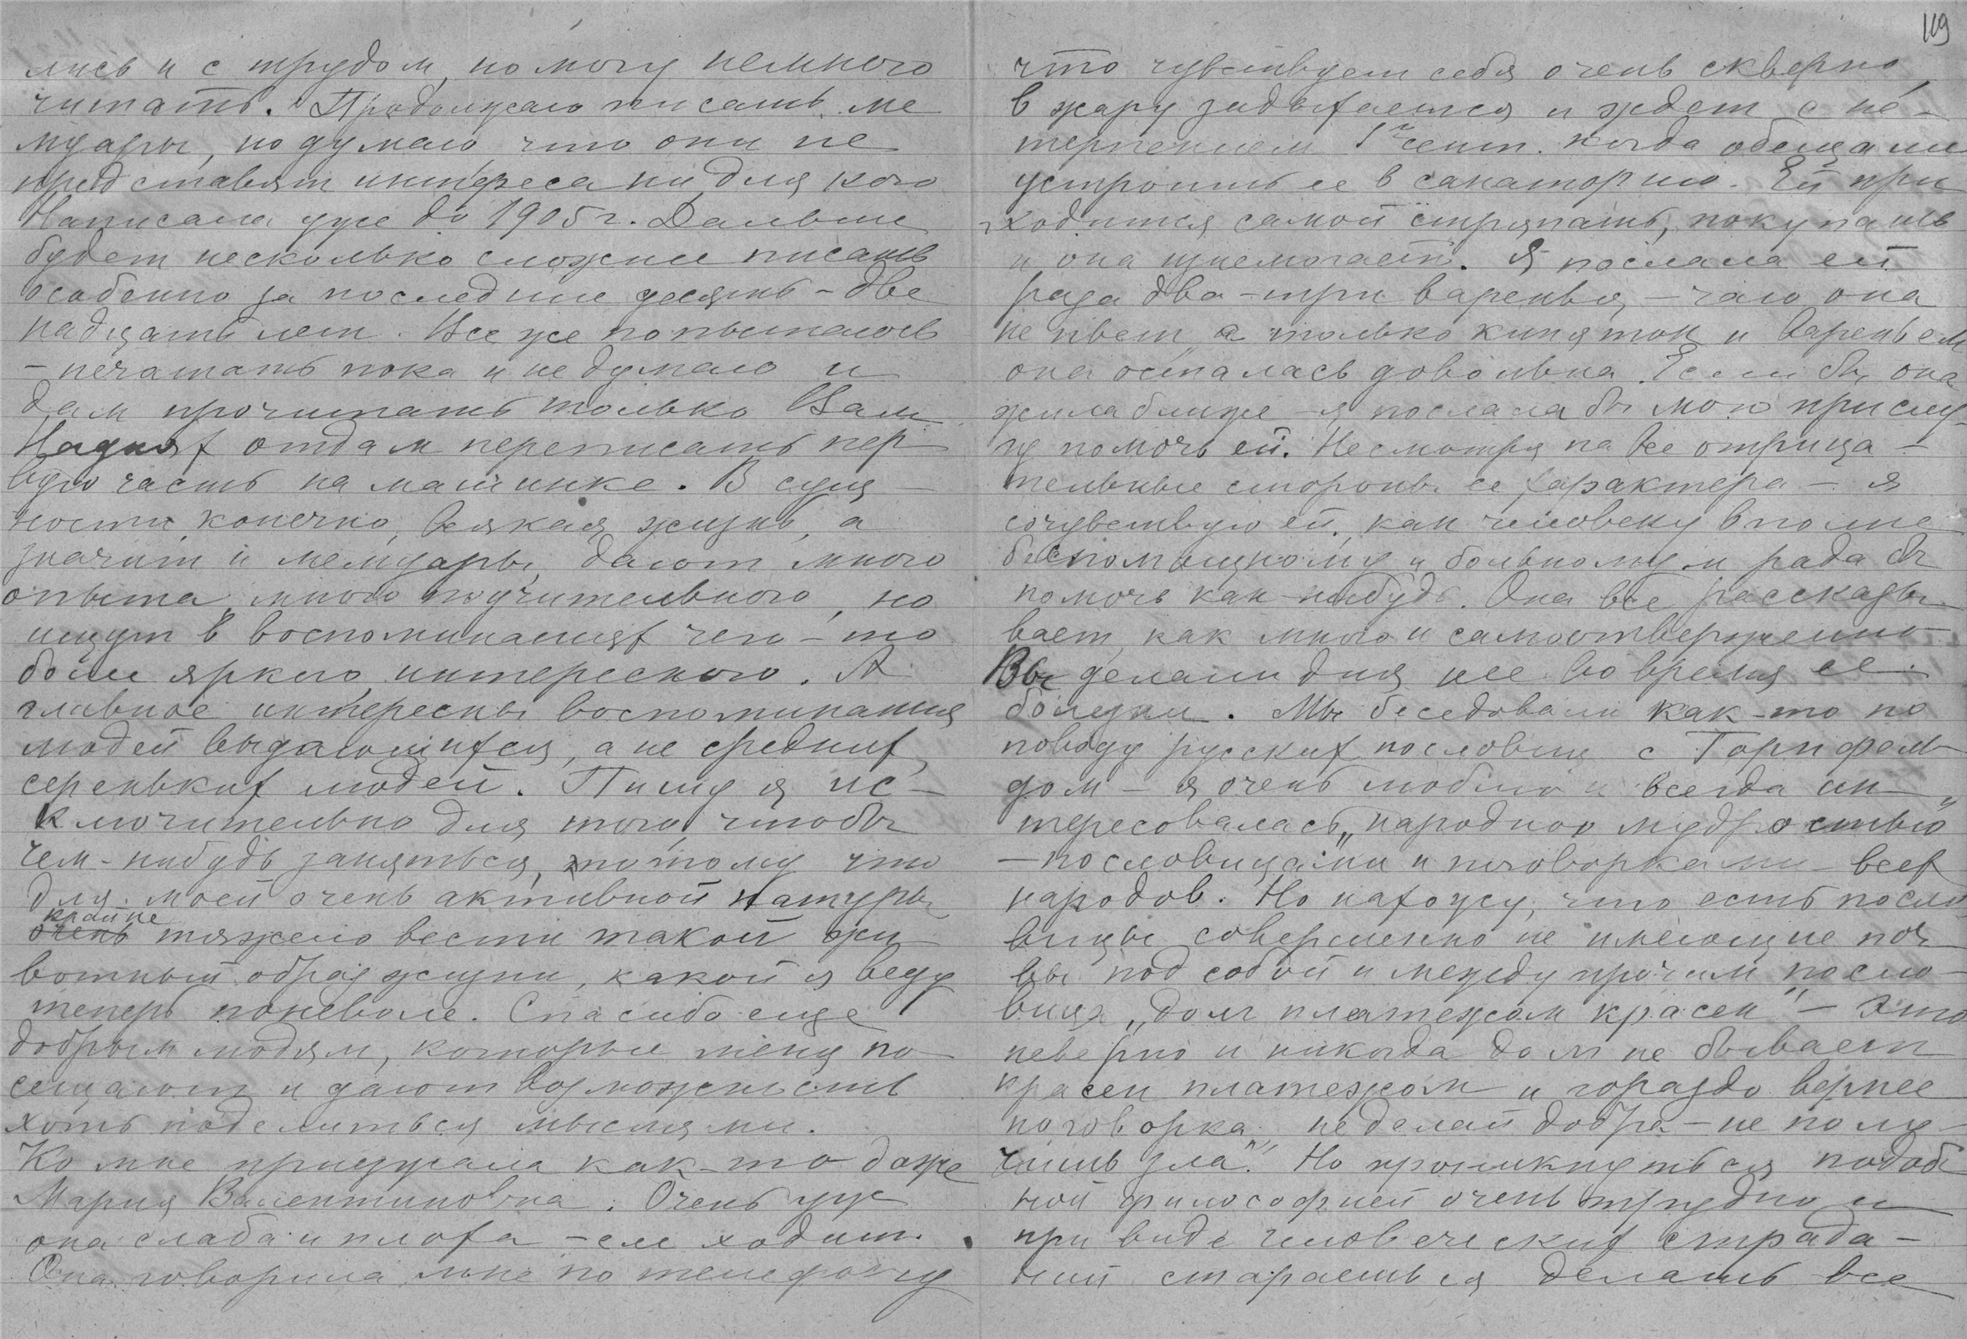 лись и с трудом, но могу немного
читать. Продолжаю писать ме
муары, но думаю что они не
представят интереса ни для кого
Написала уже до 1905 г. Дальше
будет несколько сложнее писать
особенно за последние десять – две
надцать лет. Все же попытаюсь
– печатать пока и не думаю и
дам прочитать только Вам.
На днях отдам переписать пер
вую часть на машинке. В сущ –
ности, конечно, всякая жизнь, а
значит и мемуары, дают много
опыта, много поучительного, но
ищут в воспоминаниях чего – то
более яркого, интересного. А
главное интересны воспоминания
людей выдающихся, а не средних,
сереньких людей. Пишу я ис –
ключительно для того, чтобы
чем – нибудь заняться, потому что
для моей очень активной натуры
крайне
очень тяжело вести такой жи
вотный образ жизни, какой я веду
теперь поневоле. Спасибо еще
добрым людям, которые меня по –
сещают и дают возможность
хоть поделиться мыслями.
Ко мне приезжала как – то даже
Мария Валентиновна. Очень уж
она слаба и плоха – еле ходит.
Она говорила мне по телефону
119
что чувствует себя очень скверно,
в жару задыхается и ждет с не –
терпением 1го сент. когда обещали
устроить ее в санаторию. Ей при
ходится самой стряпать, покупать
и она изнемогает. Я послала ей
раза два – три варенья, – чаю она
не пьет, а только кипяток и вареньем
она осталась довольна. Если бы она
жила ближе – я послала бы мою прислу
гу помочь ей. Несмотря на все отрица –
тельные стороны ее характера – я
сочувствую ей, как человеку вполне
беспомощному и больному и рада бы
помочь как – нибудь. Она все рассказы
вает, как много и самоотверженно
Вы делали для нее во время ее
болезни. Мы беседовали как – то по
поводу русских пословиц с Горнфель
дом – я очень люблю и всегда ин –
тересовалась „народной мудростью“
– пословицами и поговорками – всех
народов. Но нахожу, что есть посло
вицы совершенно не имеющие поч
вы под собой и между прочим посло –
вица „долг платежом красен“ – это
неверно и никогда долг не бывает
красен платежом и гораздо вернее
поговорка „не делай добра – не полу –
чишь зла“. Но проникнуться подоб
ной философией очень трудно и
при виде человеческих страда –
ний стараешься делать все